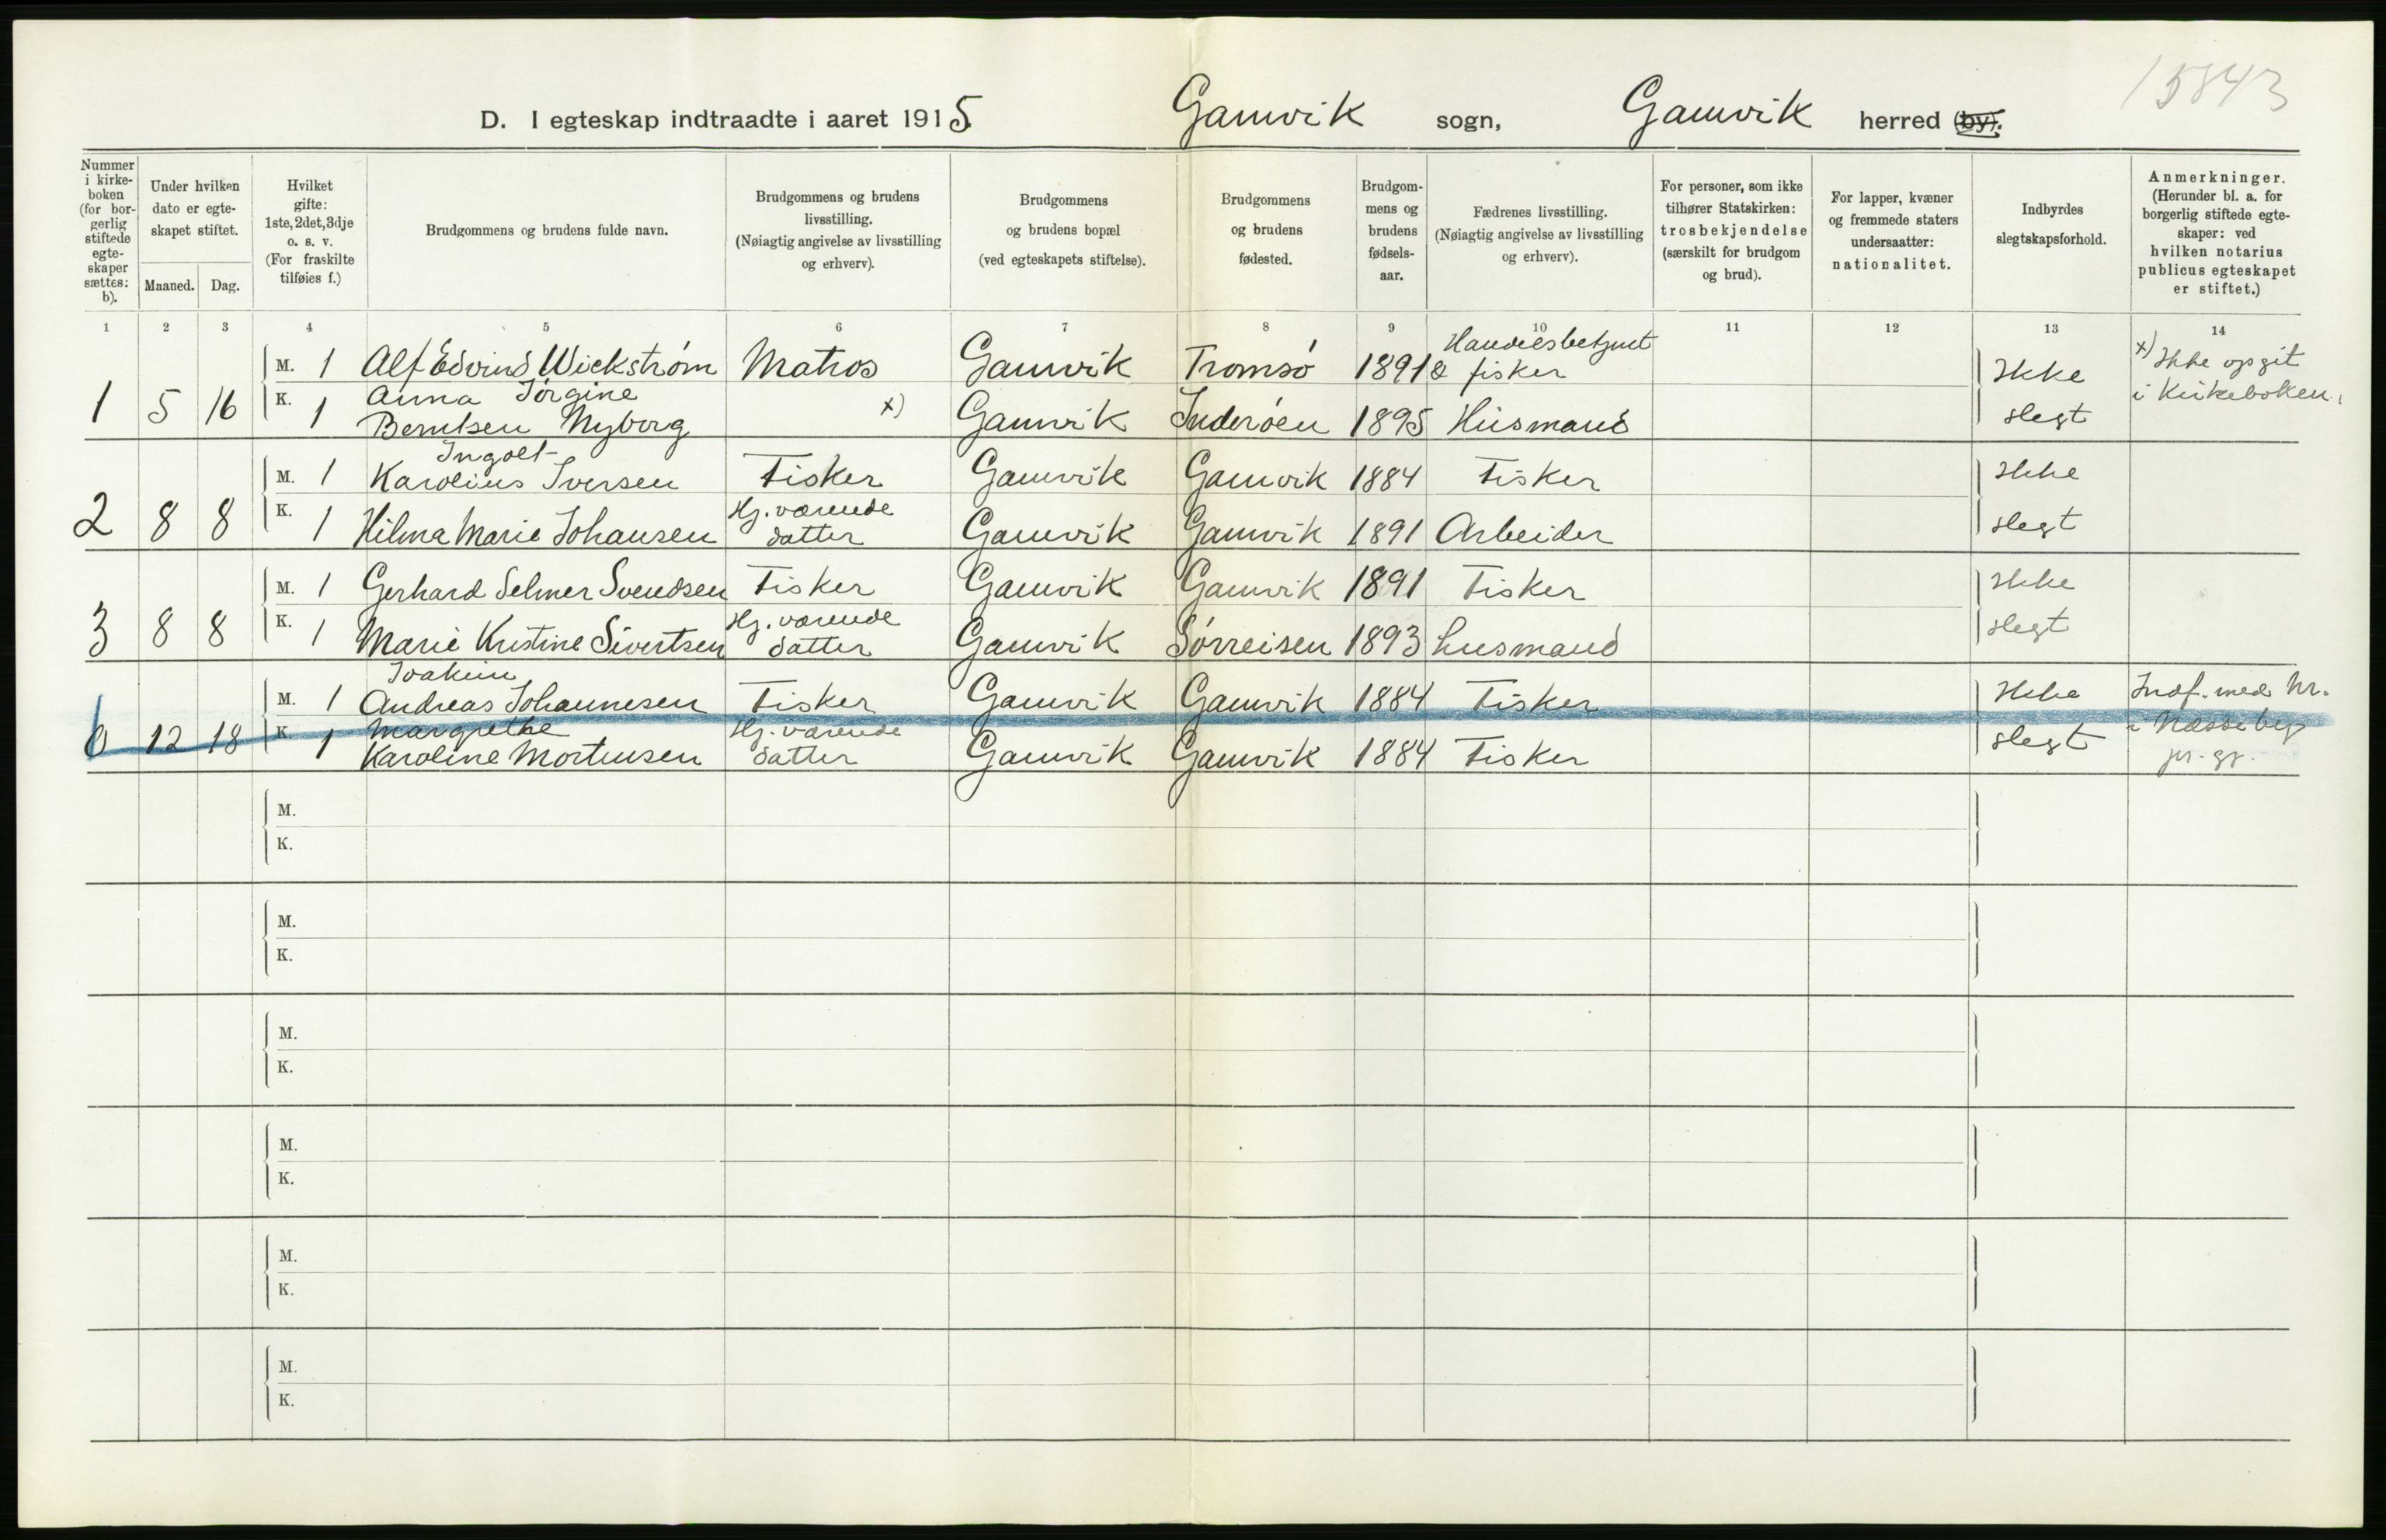 15843
D. I egteskap indtraadte i aaret 1915. Gamvik sogn, Gamvik herred (by).
Nummer i kirke-boken (for bor-gerlig stiftede egte-skaper sættes: b).
Under hvilken dato er egte-skapet stiftet.
Maaned. Dag.
Hvilket gifte: 1ste, 2det, 3dje o. s. v. (For fraskilte tilføies f.)
Brudgommens og brudens fulde navn.
Brudgommens og brudens livsstilling. (Nøiagtig angivelse av livsstilling og erhverv).
Brudgommens og brudens bopæl (ved egteskapets stiftelse).
Brudgommens og brudens fødested.
Brudgom-mens og brudens fødsels-aar.
Fædrenes livsstilling. (Nøiagtig angivelse av livsstilling og erhverv).
For personer, som ikke tilhører Statskirken: trosbekjendelse (særskilt for brudgom og brud).
For lapper, kvæner og fremmede staters undersaatter: nationalitet.
Indbyrdes slegtskapsforhold.
Anmerkninger. (Herunder bl. a. for borgerlig stiftede egte-skaper: ved hvilken notarius publicus egteskapet er stiftet.)
1 2 3 4 5 6 7 8 9 10 11 12 13 14
Handelsbetjent
M. 1 Alf Edvind Wickstrøm Matros Gamvik Tromsø 1891 & fisker Ikke x) Ikke opgit
1 5 16 K. 1 Anna Jørgine x) i Kirkeboken.
Berntsen Nyborg Gamvik Inderøen 1895 Husmand slegt
Ingolt
M. 1 Karolius Iversen Fisker Gamvik Gamvik 1884 Fisker Ikke
2 8 8 K. 1 Hilma Marie Johansen Hj. værende datter Gamvik Gamvik 1891 Arbeider slegt
M. 1 Gerhard Selmer Svendsen Fisker Gamvik Gamvik 1891 Fisker Ikke
3 8 8 K. 1 Marie Kristine Sivertsen Hj. værende datter Gamvik Sørreisen 1893 Husmand slegt
Joakim
M. 1 Andreas Johannesen Fisker Gamvik Gamvik 1884 Fisker Ikke Indf. med Nr.
6 12 18 K. 1 Margrethe Hj. værende i Næsseby
Karoline Mortensen datter Gamvik Gamvik 1884 Fisker slegt pr. gj.
M.
K.
M.
K.
M.
K.
M.
K.
M.
K.
M.
K.